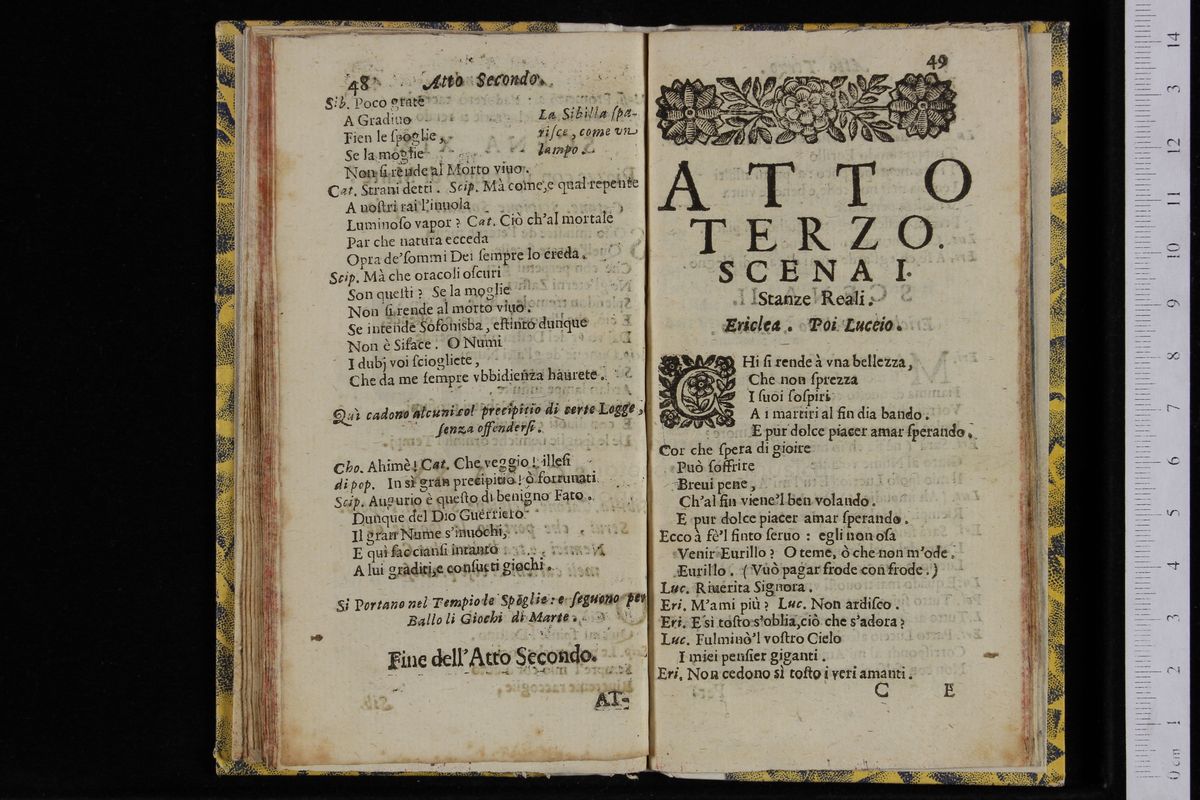 48 Atto Secondo.
Sib. Poco grate
A Gradiuo
Fien le ſpoglie,
Se la moglie
Non ſi rende al Morto viuo.
La Sibilla ſpa-
riſce, come vn
lampo.
Cat. Strani detti. Scip. Mà come, e qual repente
A noſtri rai l'inuola
Luminoſo vapor? Cat. Ciò ch'al mortale
Par che natura ecceda
Opra de'ſommi Dei ſempre lo creda.
Scip. Mà che oracoli oſcuri
Son queſti? Se la moglie
Non ſi rende al morto viuo.
Se intende Sofonisba, eſtinto dunque
Non è Siface. O Numi
I dubj voi ſciogliete,
Che da me ſempre vbbidienza haurete.
Quì cadono alcuni col precipitio di certe Logge,
ſenza offenderſi.
Cho. Ahimè! Cat. Che veggio! illeſi
di pop. In sì gran precipitio! ò fortunati
Scip. Augurio è queſto di benigno Fato.
Dunque del Dio Guerriero
Il gran Nume s'inuochi,
E quì faccianſi intanto
A lui graditi, e conſueti giochi.
Si Portano nel Tempio le Spoglie: e ſeguono per
Ballo li Giochi di Marte.
Fine dell'Atto Secondo.
AT-
49
ATTO
TERZO.
SCENA I.
Stanze Reali.
Ericlea. Poi Luceio.
CHi ſi rende à vna bellezza,
Che non ſprezza
I ſuoi ſoſpiri
A i martiri al fin dia bando.
E pur dolce piacer amar ſperando.
Cor che ſpera di gioire
Può ſoffrire
Breui pene,
Ch'al fin viene'l ben volando.
E pur dolce piacer amar ſperando.
Ecco à fè'l finto ſeruo: egli non oſa
Venir Eurillo? O teme, ò che non m'ode.
Eurillo. (Vuò pagar frode con frode.)
Luc. Riuerita Signora.
Eri. M'ami più? Luc. Non ardiſco.
Eri. E sì toſto s'oblia, ciò che s'adora?
Luc. Fulminò'l voſtro Cielo
I miei penſier giganti.
Eri. Non cedono sì toſto i veri amanti.
C E